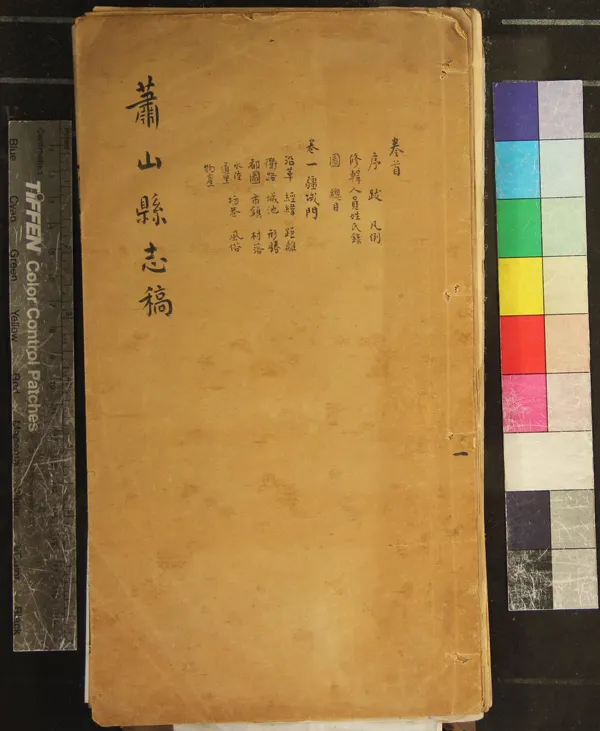 蕭山縣志稿
卷首
序 跋 凡例
修輯人員姓氏錄
圖 總目
卷一 疆域門
沿革 經緯 距離
衢路 城池 形勝
都圖 市鎮 村落
水陸
道里 坊巷 風俗
物產
一
TIFFEN Color Control Patches
Blue
Cyan
Green
Yellow
Red
Magenta
Black